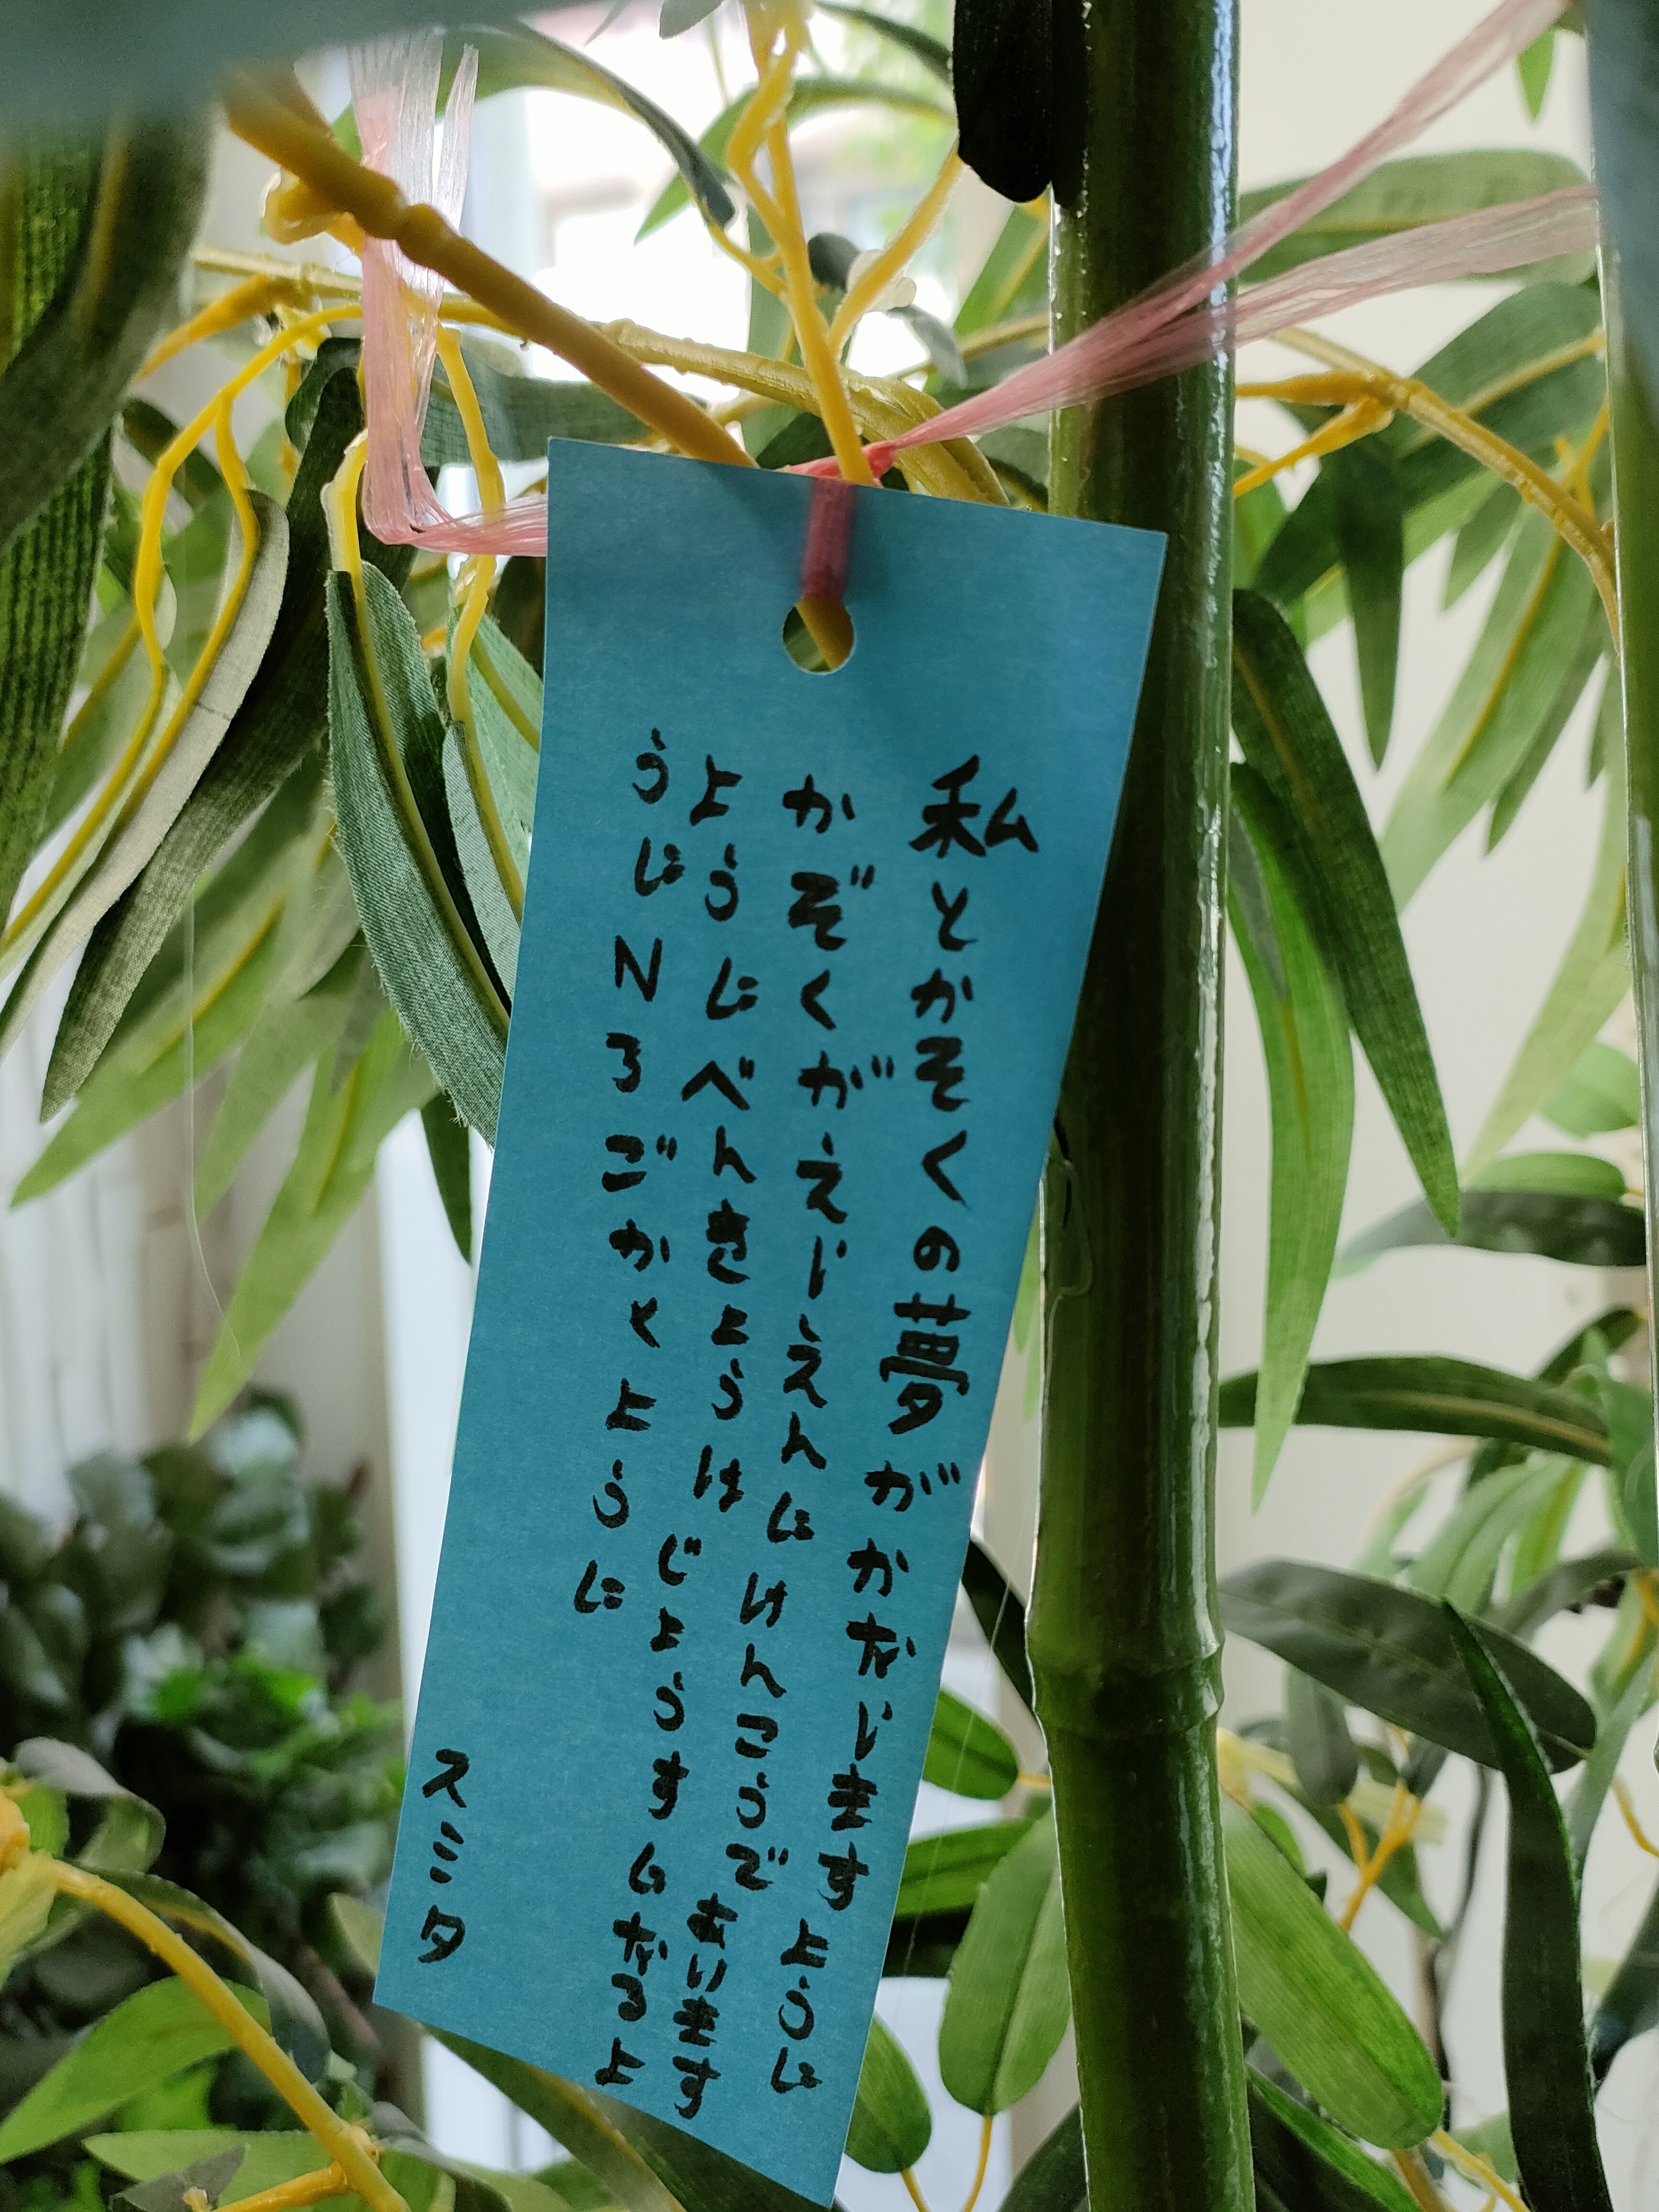 私とかそくの夢がかないますように
かぞくがえいえんにけんこうであいます
ようにべんきょうはじょうすになるよ
うにN3ごかくように
スミタ